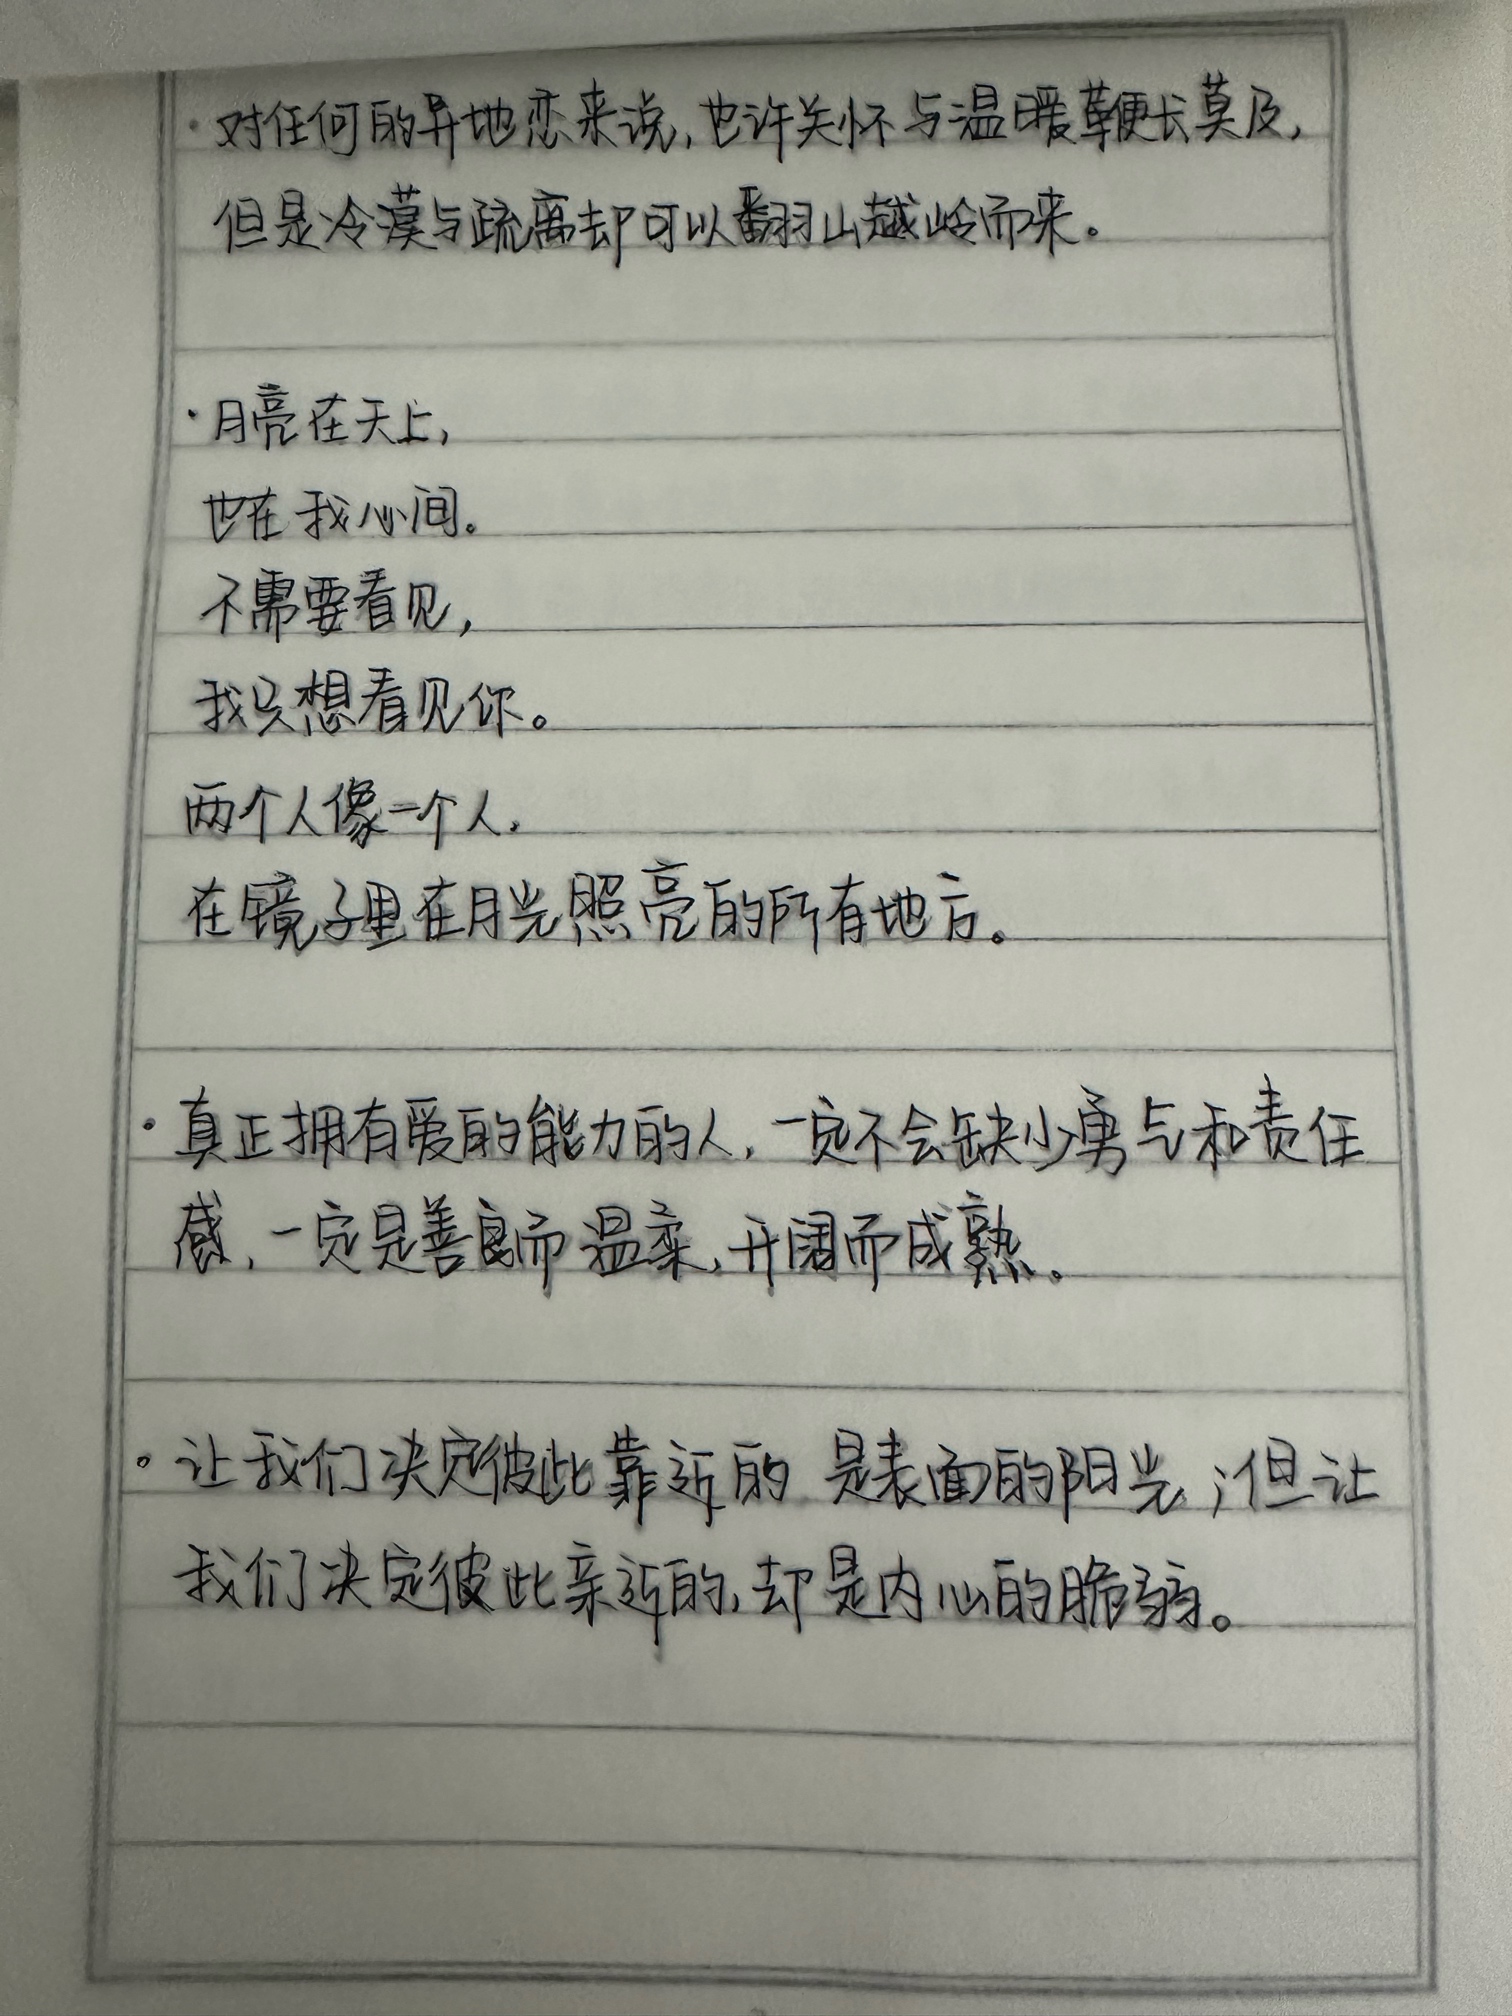 · 对任何的异地恋来说，也许关怀与温暖鞭长莫及，
但是冷漠与疏离却可以翻山越岭而来。
· 月亮在天上，
也在我心间。
不需要看见，
我只想看见你。
两个人像一个人，
在镜子里在月光照亮的所有地方。
· 真正拥有爱的能力的人，一定不会缺少勇气和责任
感，一定是善良而温柔，开阔而成熟。
· 让我们决定彼此靠近的 是表面的阳光；但让
我们决定彼此亲近的，却是内心的脆弱。